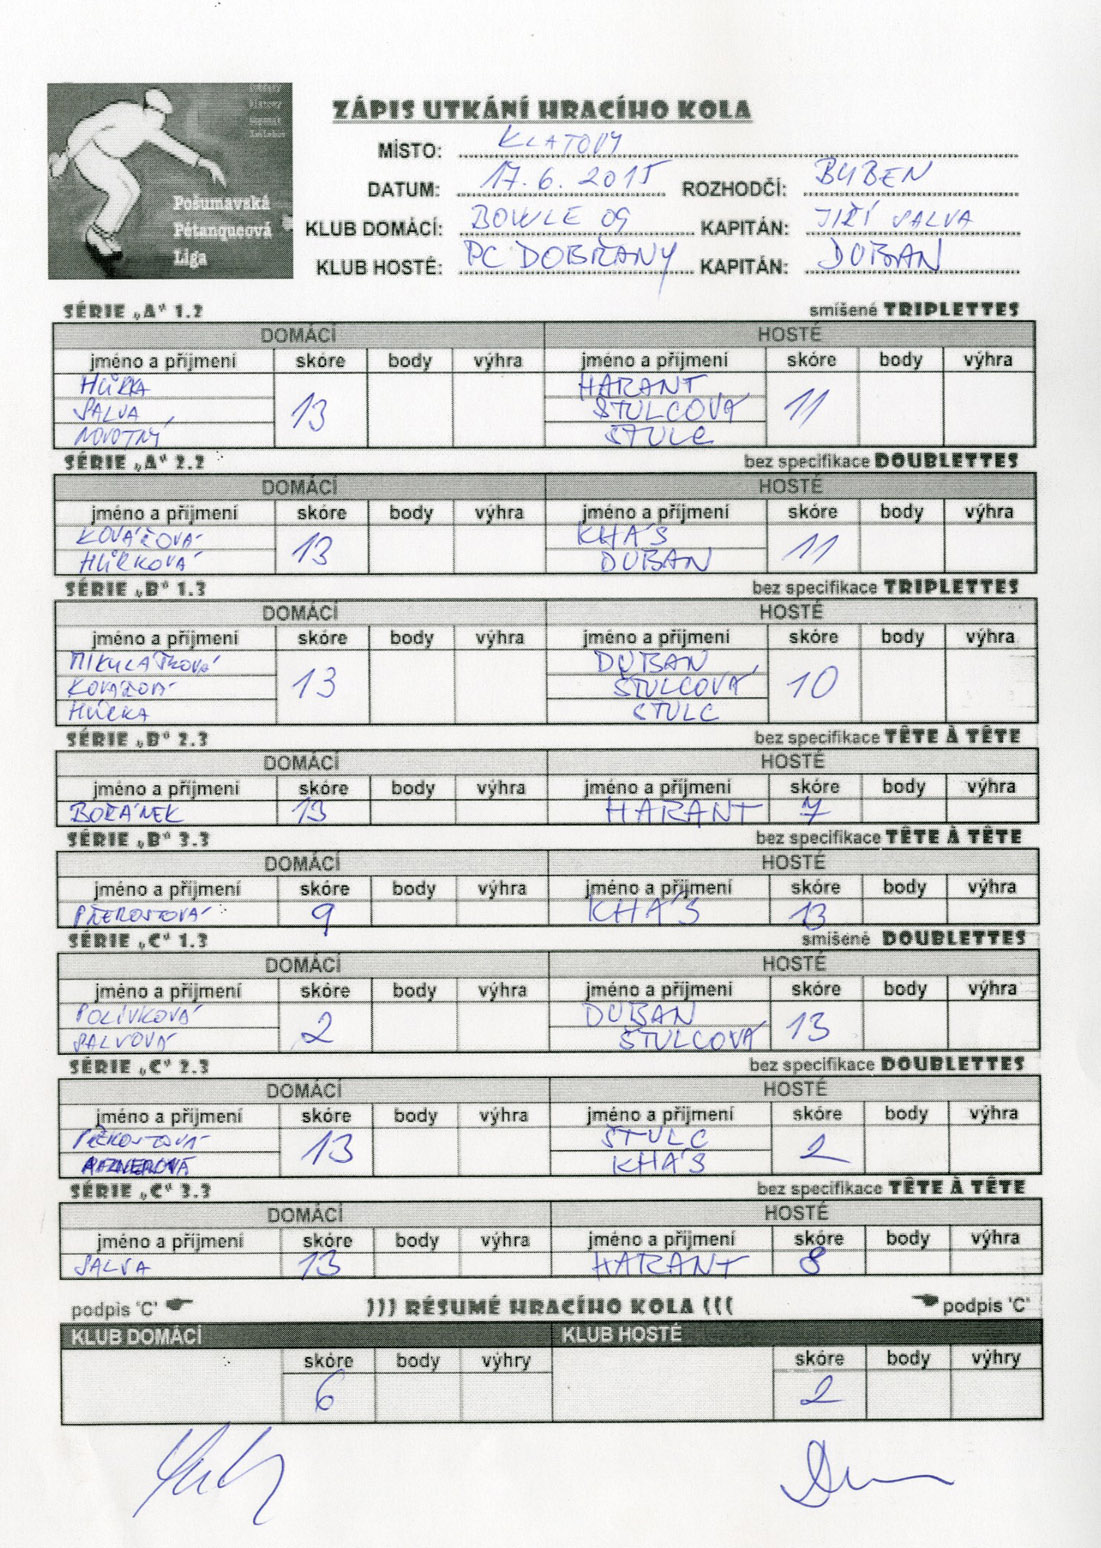 Pošumavská
Pétanqueová
Liga
ZÁPIS UTKÁNÍ HRACÍHO KOLA
MÍSTO: KLATOVY
DATUM: 17.6.2015 ROZHODČÍ: BUBEN
KLUB DOMÁCÍ: BOWLE 09 KAPITÁN: JIŘÍ SALVA
KLUB HOSTÉ: PC DOBŘANY KAPITÁN: DUBAN
SÉRIE „A“ 1.2 smíšené TRIPLETTES
DOMÁCÍ HOSTÉ
jméno a příjmení skóre body výhra jméno a příjmení skóre body výhra
HŮRKA HARANT
SALVA 13 ŠTULCOVÁ 11
NOVOTNÝ ŠTULC
SÉRIE „A“ 2.2 bez specifikace DOUBLETTES
DOMÁCÍ HOSTÉ
jméno a příjmení skóre body výhra jméno a příjmení skóre body výhra
KOVÁŘOVÁ 13 KHÁS 11
HŮRKOVÁ DUBAN
SÉRIE „B“ 1.3 bez specifikace TRIPLETTES
DOMÁCÍ HOSTÉ
jméno a příjmení skóre body výhra jméno a příjmení skóre body výhra
MIKULÁŠKOVÁ DUBAN
KOVÁŘOVÁ 13 ŠTULCOVÁ 10
HŮRKA ŠTULC
SÉRIE „B“ 2.3 bez specifikace TÊTE À TÊTE
DOMÁCÍ HOSTÉ
jméno a příjmení skóre body výhra jméno a příjmení skóre body výhra
BOŘÁNEK 13 HARANT 7
SÉRIE „B“ 3.3 bez specifikace TÊTE À TÊTE
DOMÁCÍ HOSTÉ
jméno a příjmení skóre body výhra jméno a příjmení skóre body výhra
9 KHÁS 13
SÉRIE „C“ 1.3 smíšené DOUBLETTES
DOMÁCÍ HOSTÉ
jméno a příjmení skóre body výhra jméno a příjmení skóre body výhra
POLÍVKOVÁ 2 DUBAN 13
SALVOVÁ ŠTULCOVÁ
SÉRIE „C“ 2.3 bez specifikace DOUBLETTES
DOMÁCÍ HOSTÉ
jméno a příjmení skóre body výhra jméno a příjmení skóre body výhra
13 ŠTULC 2
KHÁS
SÉRIE „C“ 3.3 bez specifikace TÊTE À TÊTE
DOMÁCÍ HOSTÉ
jméno a příjmení skóre body výhra jméno a příjmení skóre body výhra
SALVA 13 HARANT 8
podpis 'C' ))) RÉSUMÉ HRACÍHO KOLA ((( podpis 'C'
KLUB DOMÁCÍ KLUB HOSTÉ
skóre body výhry skóre body výhry
6 2